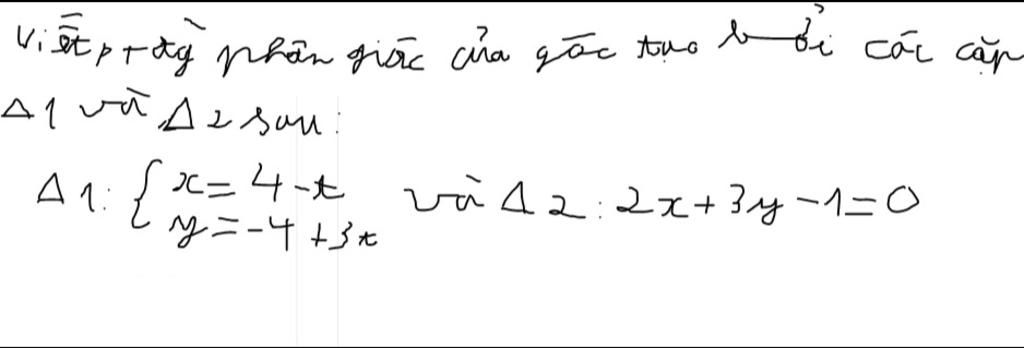 Viết pt đg phân giác của góc tạo bởi các cặp
Δ1 và Δ2 sau:
Δ1: { x = 4 - t và Δ2: 2x + 3y - 1 = 0
y = -4 + 3t